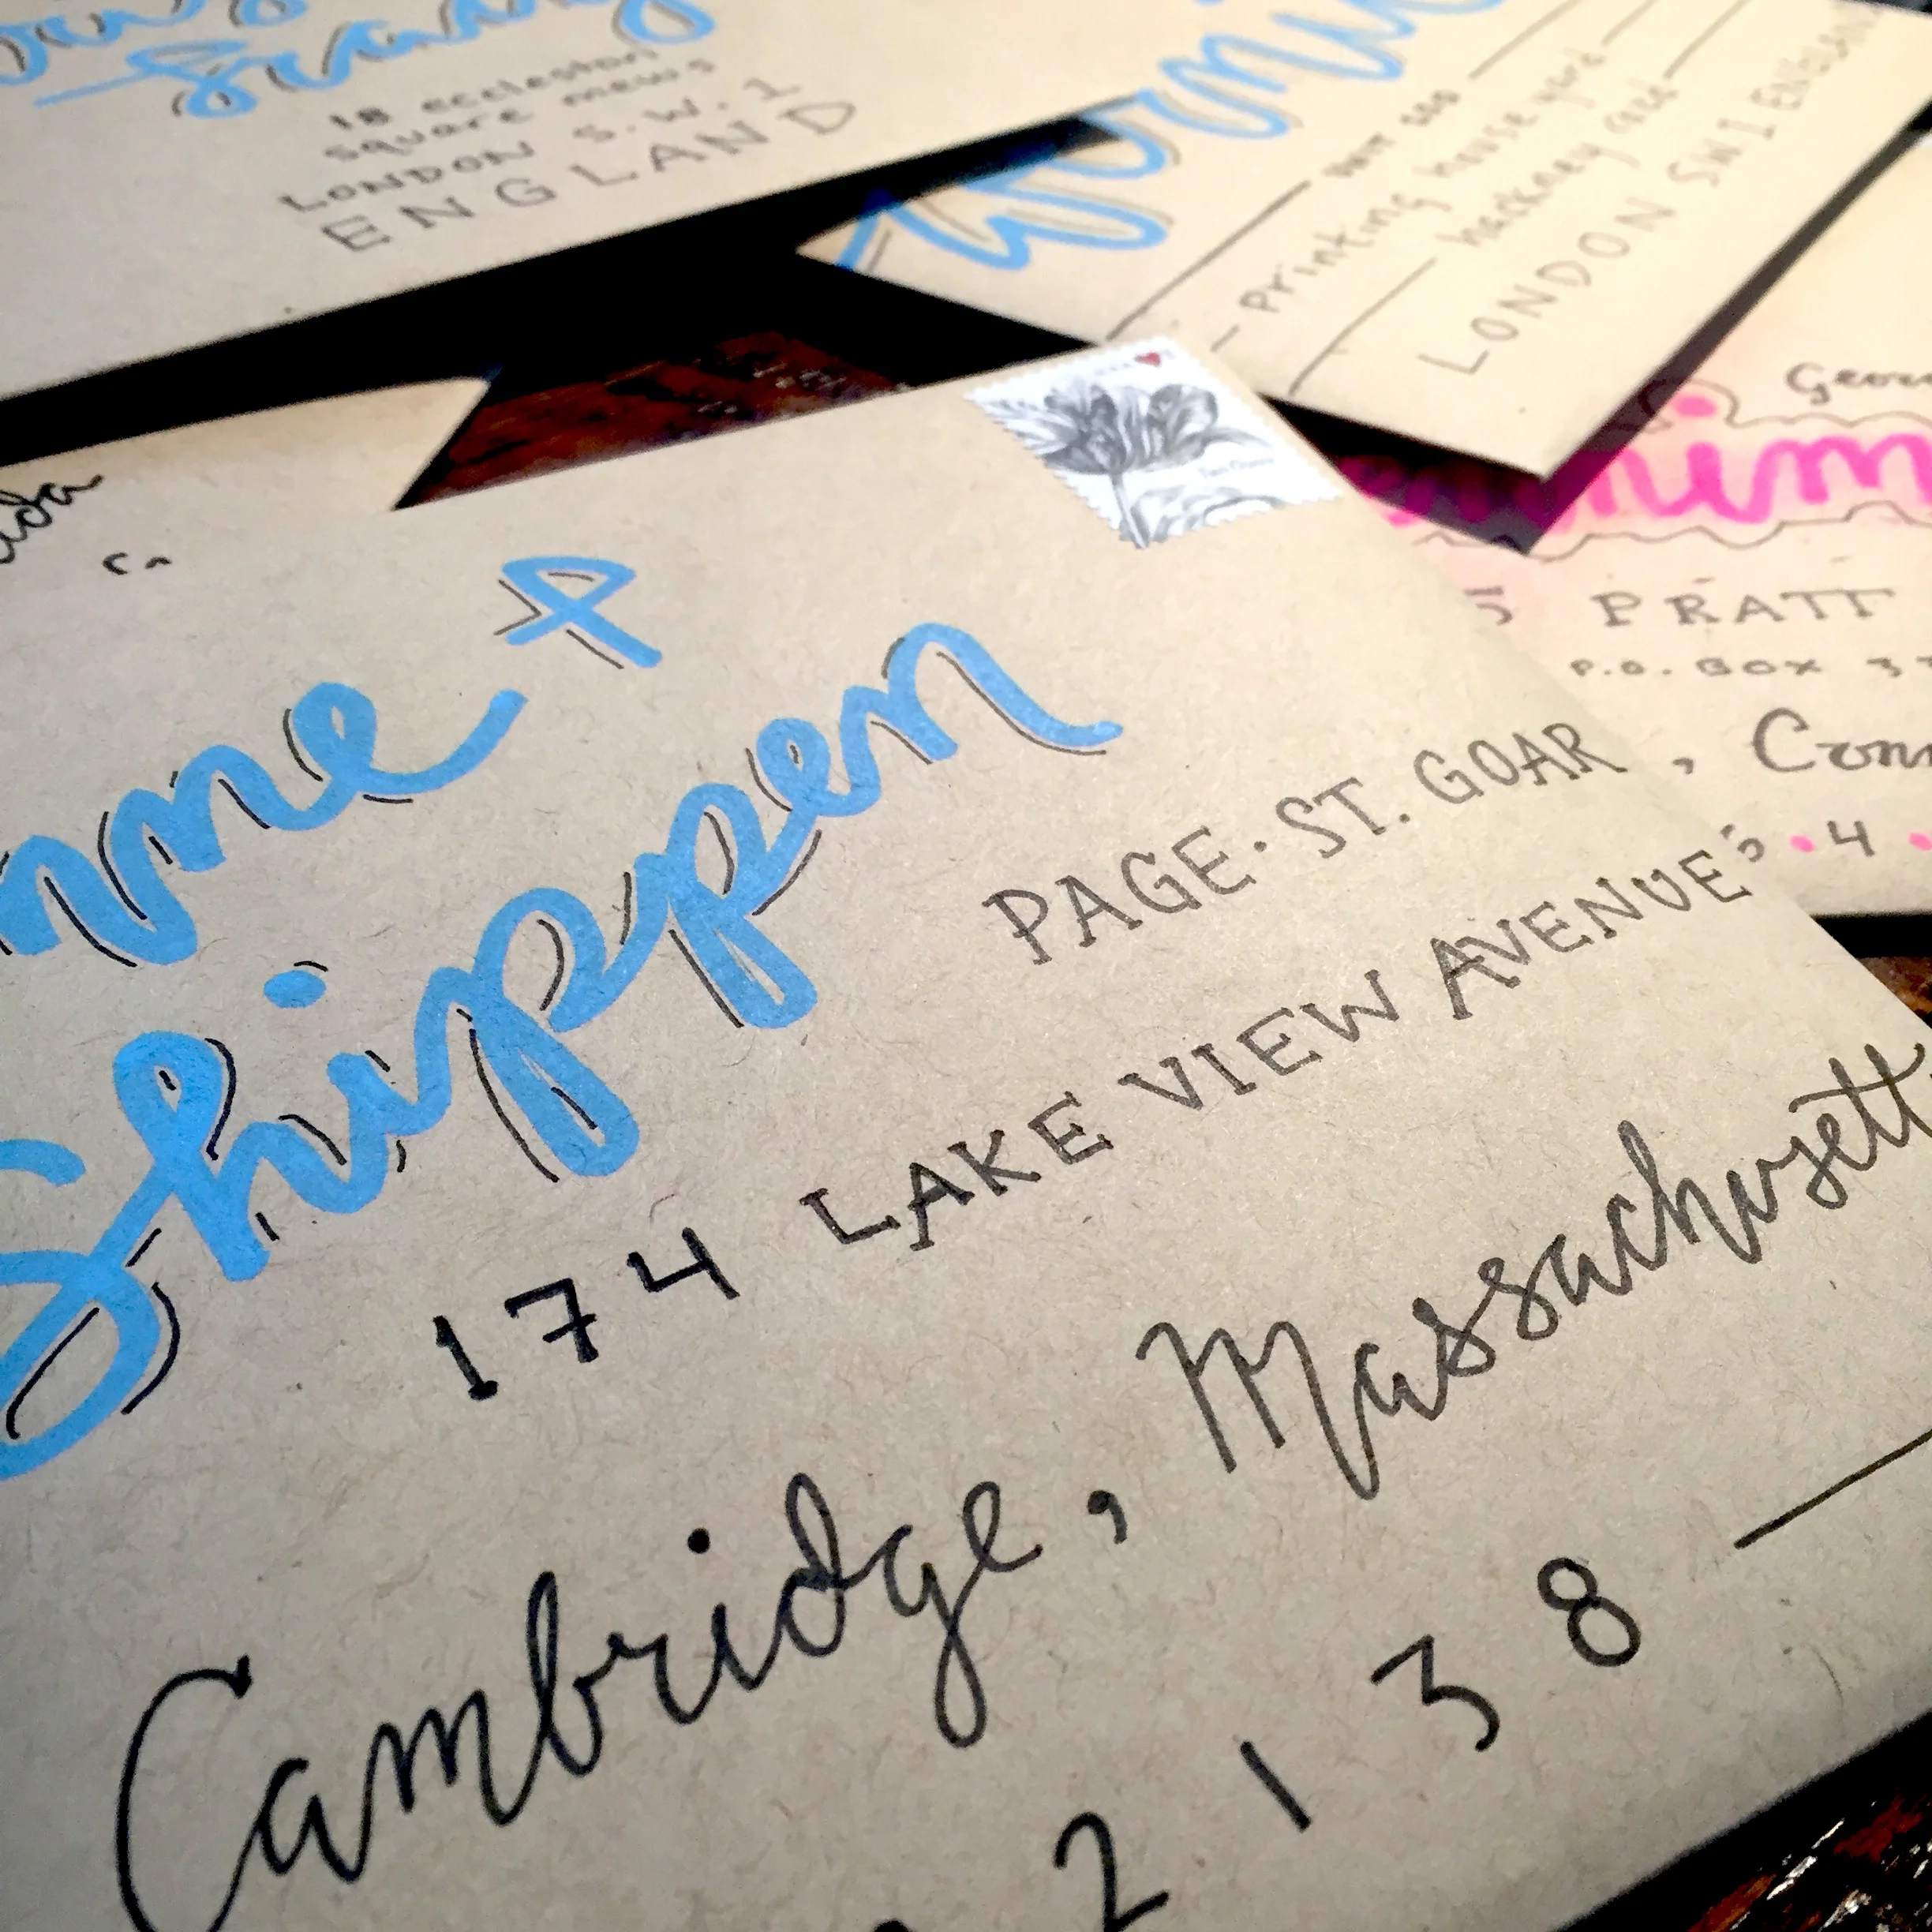 18 eccleston
square mews
LONDON S.W.1
ENGLAND
Printing house yard
hackney road
LONDON SW1 ENGLAND
PRATT
P.O. BOX
, Conn
4
&
Shippen
PAGE · ST. GOAR
174 LAKE VIEW AVENUE
Cambridge, Massachusett
2138